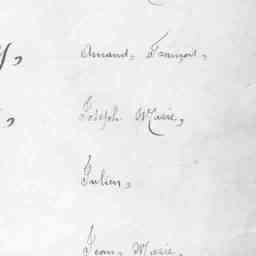 Amand, François,
Joseph Marie,
Julien,
Jean, Marie,